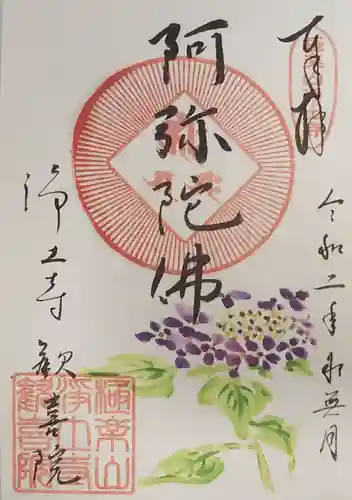 奉拝
令和二年水無月
阿弥陀佛
浄土寺
歓喜院
極楽山
浄土寺
歓喜院